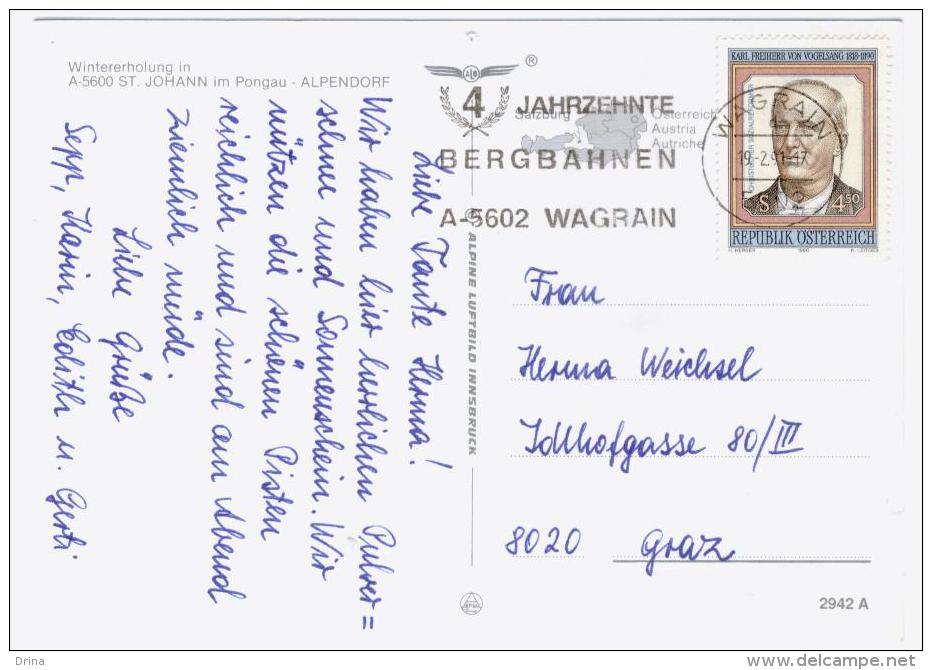 Wintererholung in
A-5600 ST. JOHANN im Pongau - ALPENDORF
ALB
®
4 JAHRZEHNTE
BERGBAHNEN
A-5602 WAGRAIN
Salzburg
Österreich
Austria
Autriche
WAGRAIN
19.-2.91-17
KARL FREIHERR VON VOGELSANG 1818-1890
S 4.50
REPUBLIK ÖSTERREICH
1990
Liebe Tante Herma!
Wir haben hier herrlichen Pulver=
schnee und Sonnenschein. Wir
nützen die schönen Pisten
reichlich und sind am Abend
ziemlich müde.
Liebe Grüße
Sepp, Karin, Edith u. Gerti
© ALPINE LUFTBILD INNSBRUCK
Frau
Herma Weichsel
Idlhofgasse 80/III
8020 Graz
2942 A
Drina
delcampe.net